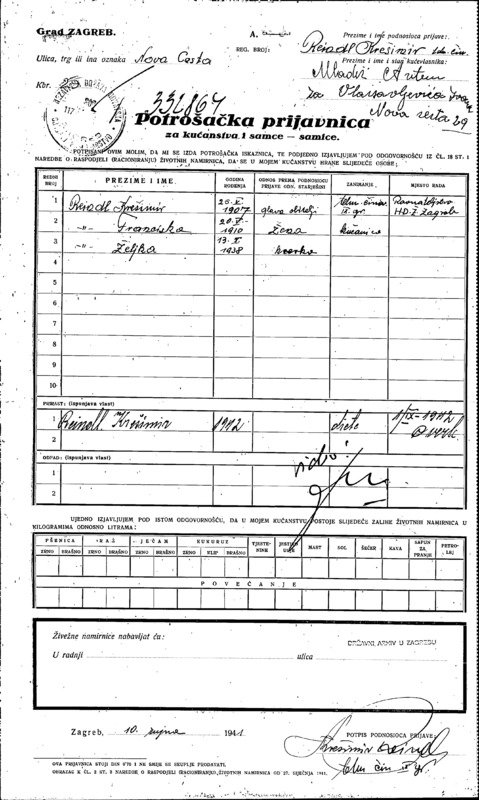 Grad ZAGREB.
A.
REG. BROJ:
Prezime i ime podnosioca prijave:
Reindl Krešimir
Ulica, trg ili ina oznaka Nova Cesta
Prezime i ime i stan kućevlasnika:
Mladić Antun
Kbr.
Nova cesta 29
332867
Potrošačka prijavnica
za kućanstva i samce — samice.
POTPISANI OVIM MOLIM, DA MI SE IZDA POTROŠAČKA ISKRAZNICA, TE PODJEDNO IZJAVLJUJEM POD ODGOVORNOŠĆU IZ ČL. 18 ST. 1
NAREDBE O RASPODJELI (RACIONIRANJU) ŽIVOTNIH NAMIRNICA, DA SE U MOJEM KUĆANSTVU HRANE SLIJEDEĆE OSOBE:
REDNI BROJ
PREZIME I IME
GODINA ROĐENJA
ODNOS PREMA PODNOSIOCU PRIJAVE ODN. STARJEŠINI
ZANIMANJE
MJESTO RADA
1 Reindl Krešimir 1907 glava obitelji
HDŽ Zagreb
2 -„- Franciska 20.X. 1910 Žena kućanica
3 -„- Željka 13.X. 1938 kćerka
4
5
6
7
8
9
10
PRIRAST: (ispunjava vlast)
1 Reindl Krešimir 1942 dijete 1/IX-1942
2
OTPAD: (ispunjava vlast)
1
2
UJEDNO IZJAVLJUJEM POD ISTOM ODGOVORNOŠĆU, DA U MOJEM KUĆANSTVU POSTOJE SLIJEDEĆE ZALIHE ŽIVOTNIH NAMIRNICA U
KILOGRAMIMA ODNOSNO LITRAMA:
PŠENICA RAŽ JEČAM KUKURUZ TJESTENINE JESTIVO ULJE MAST SOL ŠEĆER KAVA SAPUN ZA PRANJE PETROLEJ
ZRNO BRAŠNO ZRNO BRAŠNO ZRNO BRAŠNO ZRNO KLIP BRAŠNO
POVEĆANJE
Živežne namirnice nabavljat ću:
DRŽAVNI ARHIV U ZAGREBU
U radnji
ulica
Zagreb, 10. rujna 1941.
POTPIS PODNOSIOCA PRIJAVE:
Krešimir Reindl
OVA PRIJAVNICA STOJI DIN 0'75 I NE SMIJE SE SKUPLJE PRODAVATI.
OBRAZAC K ČL. 3 ST. 2 NAREDBE O RASPODJELI (RACIONIRANJU) ŽIVOTNIH NAMIRNICA OD 27. SIJEČNJA 1941.